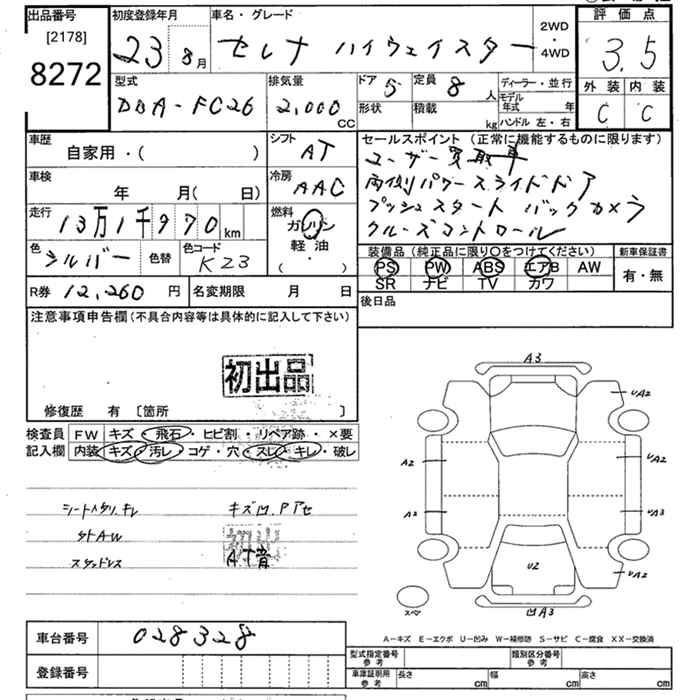 出品番号
[2178]
8272
初度登録年月
23 8月
車名・グレード
セレナ ハイウェイスター
2WD
・
4WD
評価点
3.5
外装 内装
C C
型式
DBA-FC26
排気量
2,000
CC
ドア 5
形状
定員 8 人
積載 kg
ディーラー・並行
モデル年式 年
ハンドル 左・右
車歴
自家用・( )
シフト
AT
車検
年 月( 日)
冷房
AAC
走行
13万1千970 km
燃料
ガソリン
軽油
( ・ )
色
シルバー
色替
色コード
K23
セールスポイント (正常に機能するものに限ります)
ユーザー買取車
両側パワースライドドア
プッシュスタート バックカメラ
クルーズコントロール
装備品(純正品に限り○をつけてください)
PS PW ABS エアB AW
SR ナビ TV カワ
新車保証書
有・無
R券 12,260 円
名変期限 月 日
後日品
注意事項申告欄(不具合内容等は具体的に記入して下さい)
初出品
修復歴 有 〔箇所 〕
検査員
記入欄
FW キズ・飛石・ヒビ割・リペア跡・×要
内装 キズ・汚レ・コゲ・穴・スレ・キレ・破レ
シートスタリ、キレ
外AW
スタッドレス
キズ凹、Pアセ
AT音
A3
UA2
A2
UA2
A2
UA3
U2
UA2
凹A3
スペア
A-キズ E-エクボ U-凹み W-補修跡 S-サビ C-腐食 XX-交換済
車台番号
028328
登録番号
型式指定番号
参考
類別区分番号
参考
車庫証明用
参考
長さ cm
幅 cm
高さ cm